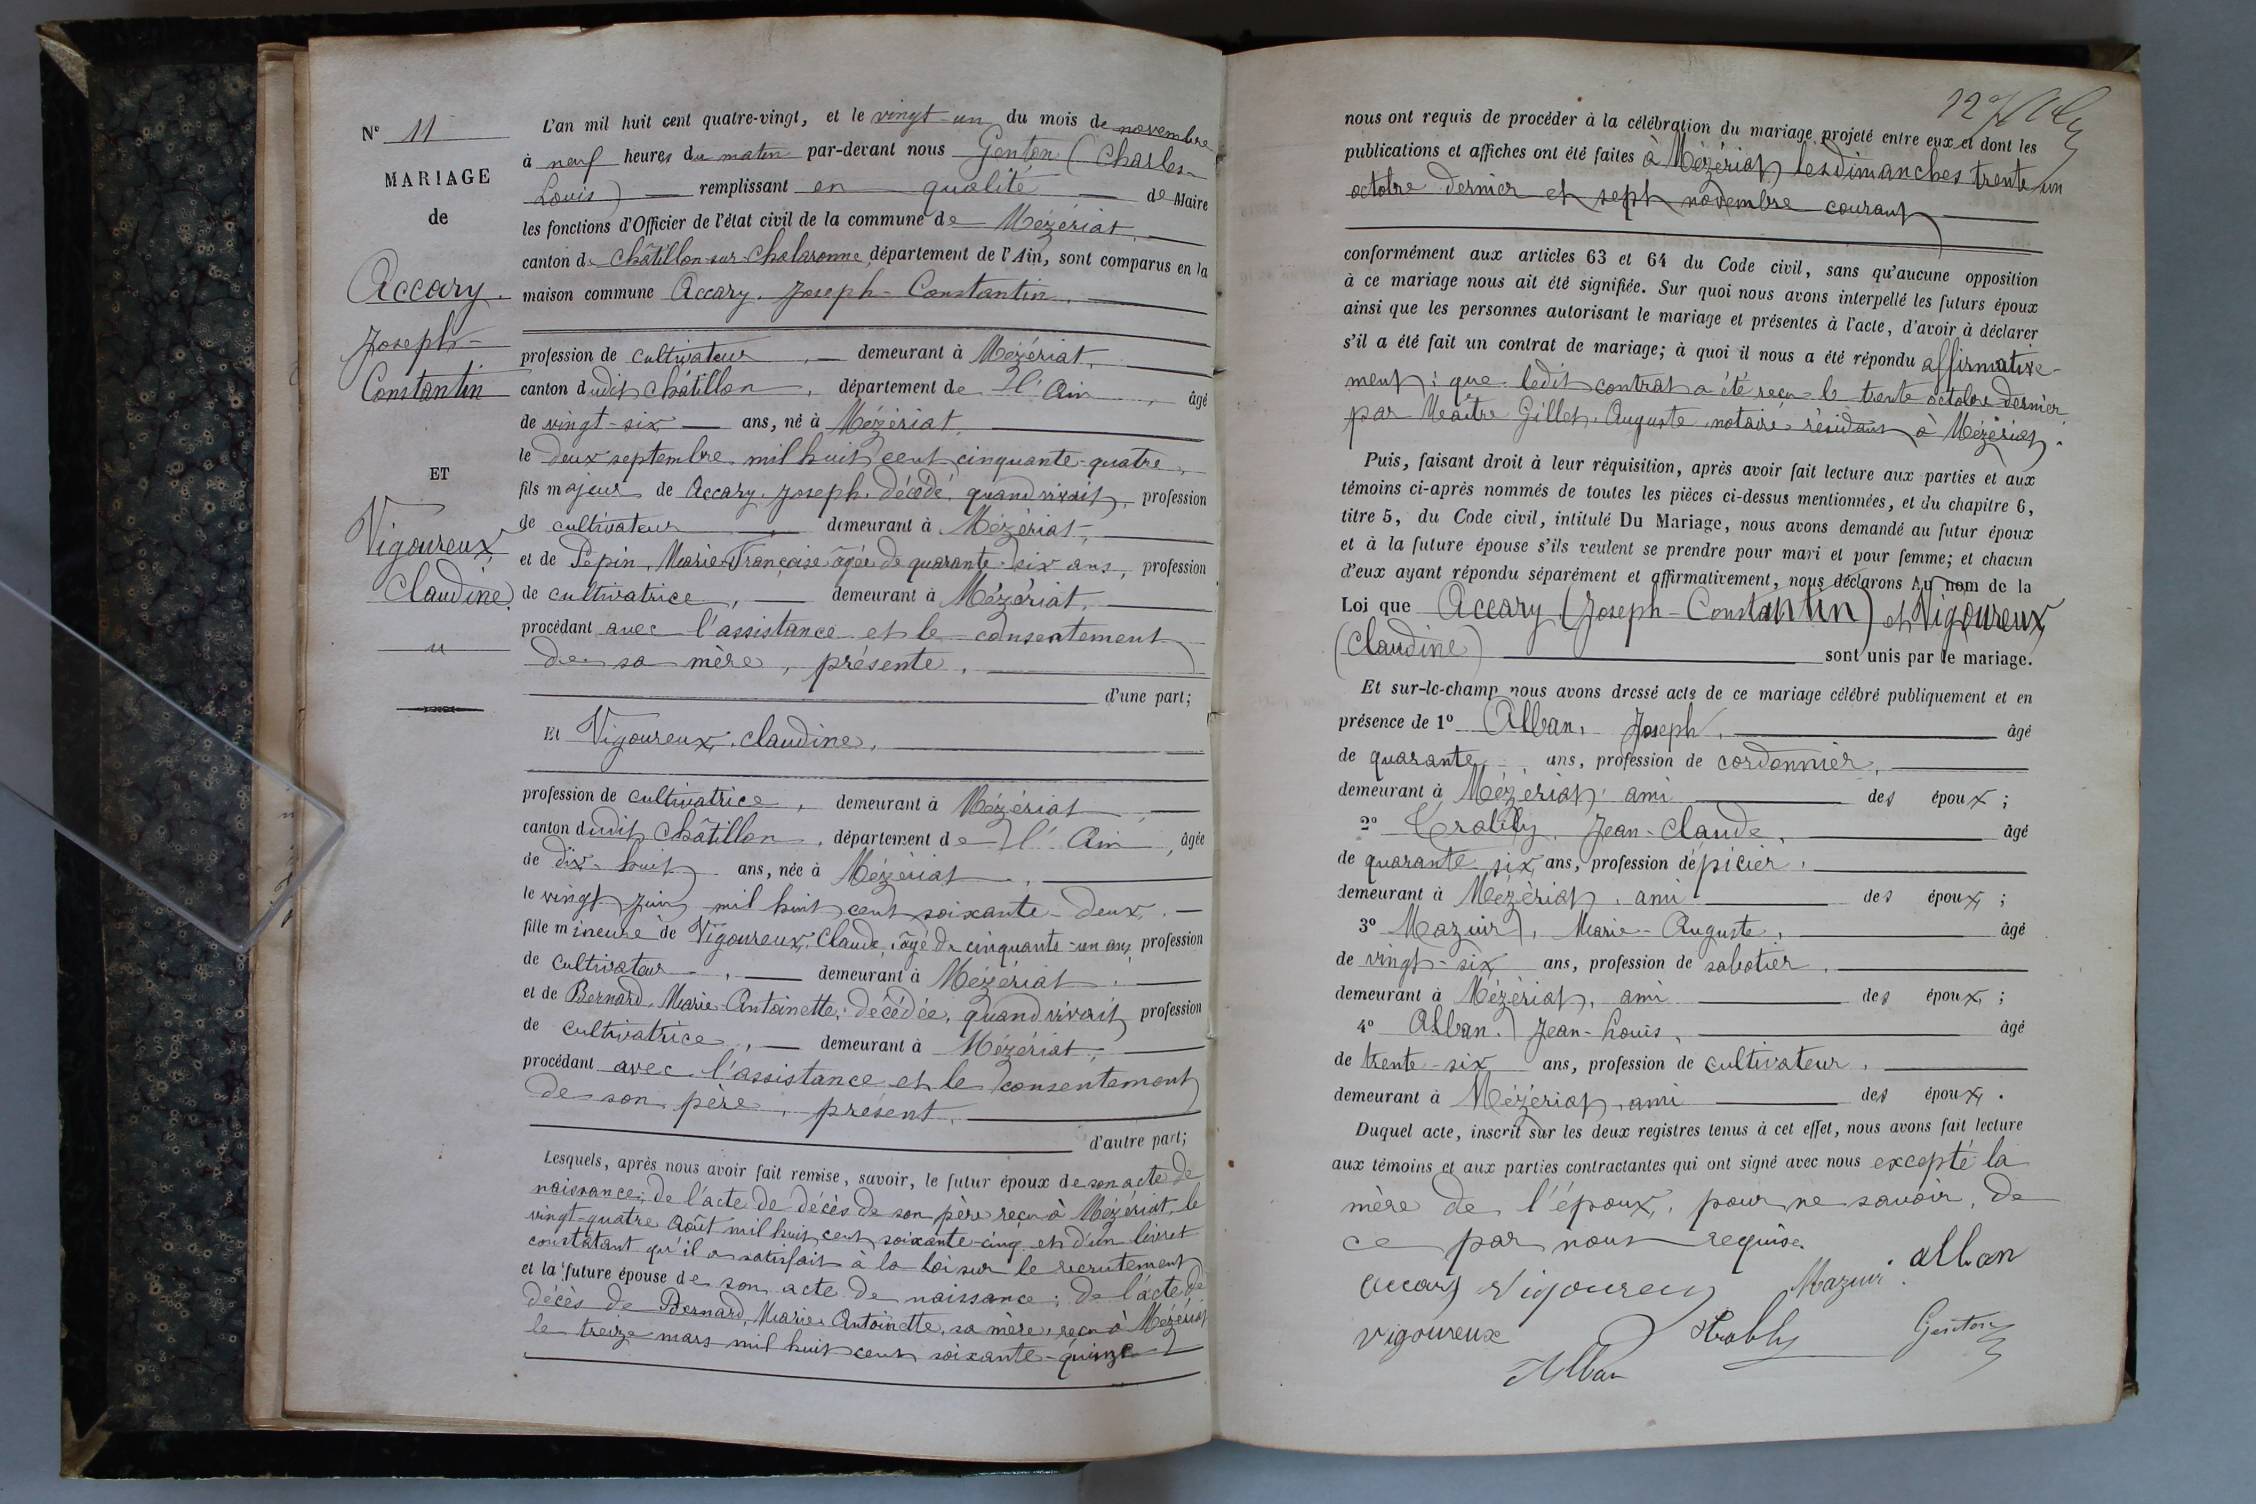 N° 11
MARIAGE
de
Accary.
Joseph-
Constantin
ET
Vigoureux
Claudine.
L'an mil huit cent quatre-vingt, et le vingt-un du mois de novembre
à neuf heures du matin par-devant nous Genton (Charles-
Louis) remplissant en qualité de Maire
les fonctions d'Officier de l'état civil de la commune de Mézériat,
canton de Châtillon-sur-Chalaronne, département de l'Ain, sont comparus en la
maison commune Accary. Joseph-Constantin,
profession de cultivateur, demeurant à Mézériat,
canton dudit châtillon, département de l'Ain, âgé
de vingt-six ans, né à Mézériat,
le deux septembre mil huit cent cinquante-quatre,
fils majeur de Accary. Joseph. décédé, quand vivait, profession
de cultivateur demeurant à Mézériat,
et de Pépin, Marie-Françoise âgée de quarante-six ans, profession
de cultivatrice, demeurant à Mézériat,
procédant avec l'assistance et le consentement
de sa mère, présente,
d'une part;
Et Vigoureux, claudine,
profession de cultivatrice, demeurant à Mézériat
canton dudit châtillon, département de l'Ain, âgée
de dix-huit ans, née à Mézériat
le vingt juin mil huit cent soixante-deux,
fille mineure de Vigoureux, Claude, âgé de cinquante-un ans, profession
de cultivateur, demeurant à Mézériat,
et de Bernard, Marie-Antoinette, décédée, quand vivait, profession
de cultivatrice, demeurant à Mézériat,
procédant avec l'assistance et le consentement
de son père, présent,
d'autre part;
Lesquels, après nous avoir fait remise, savoir, le futur époux de son acte de
naissance; de l'acte de décès de son père reçu à Mézériat, le
vingt-quatre août mil huit cent soixante-cinq et d'un livret
constatant qu'il a satisfait à la loi sur le recrutement
et la future épouse de son acte de naissance; de l'acte de
décès de Bernard, Marie-Antoinette, sa mère, reçu à Mézériat
le treize mars mil huit cent soixante-quinze
nous ont requis de procéder à la célébration du mariage projeté entre eux et dont les
publications et affiches ont été faites à Mézériat les dimanches trente un
octobre dernier et sept novembre courant
conformément aux articles 63 et 64 du Code civil, sans qu'aucune opposition
à ce mariage nous ait été signifiée. Sur quoi nous avons interpellé les futurs époux
ainsi que les personnes autorisant le mariage et présentes à l'acte, d'avoir à déclarer
s'il a été fait un contrat de mariage; à quoi il nous a été répondu affirmative-
ment; que ledit contrat a été reçu le trente octobre dernier
par Maître Gillet, Auguste, notaire résidant à Mézériat.
Puis, faisant droit à leur réquisition, après avoir fait lecture aux parties et aux
témoins ci-après nommés de toutes les pièces ci-dessus mentionnées, et du chapitre 6,
titre 5, du Code civil, intitulé Du Mariage, nous avons demandé au futur époux
et à la future épouse s'ils veulent se prendre pour mari et pour femme; et chacun
d'eux ayant répondu séparément et affirmativement, nous déclarons Au nom de la
Loi que Accary (Joseph-Constantin) et Vigoureux
(Claudine) sont unis par le mariage.
Et sur-le-champ nous avons dressé acte de ce mariage célébré publiquement et en
présence de 1° Alban, Joseph, âgé
de quarante ans, profession de cordonnier,
demeurant à Mézériat, ami des époux;
2° Trably, Jean-Claude, âgé
de quarante six ans, profession d'épicier,
demeurant à Mézériat, ami des époux;
3° Mazuir, Marie-Auguste, âgé
de vingt-six ans, profession de sabotier,
demeurant à Mézériat, ami des époux;
4° Alban, Jean-Louis, âgé
de trente-six ans, profession de cultivateur,
demeurant à Mézériat, ami des époux.
Duquel acte, inscrit sur les deux registres tenus à cet effet, nous avons fait lecture
aux témoins et aux parties contractantes qui ont signé avec nous excepté la
mère de l'époux, pour ne savoir, de
ce par nous requise.
accary Vigoureux Mazuir alban
vigoureux Trably Genton
Alban